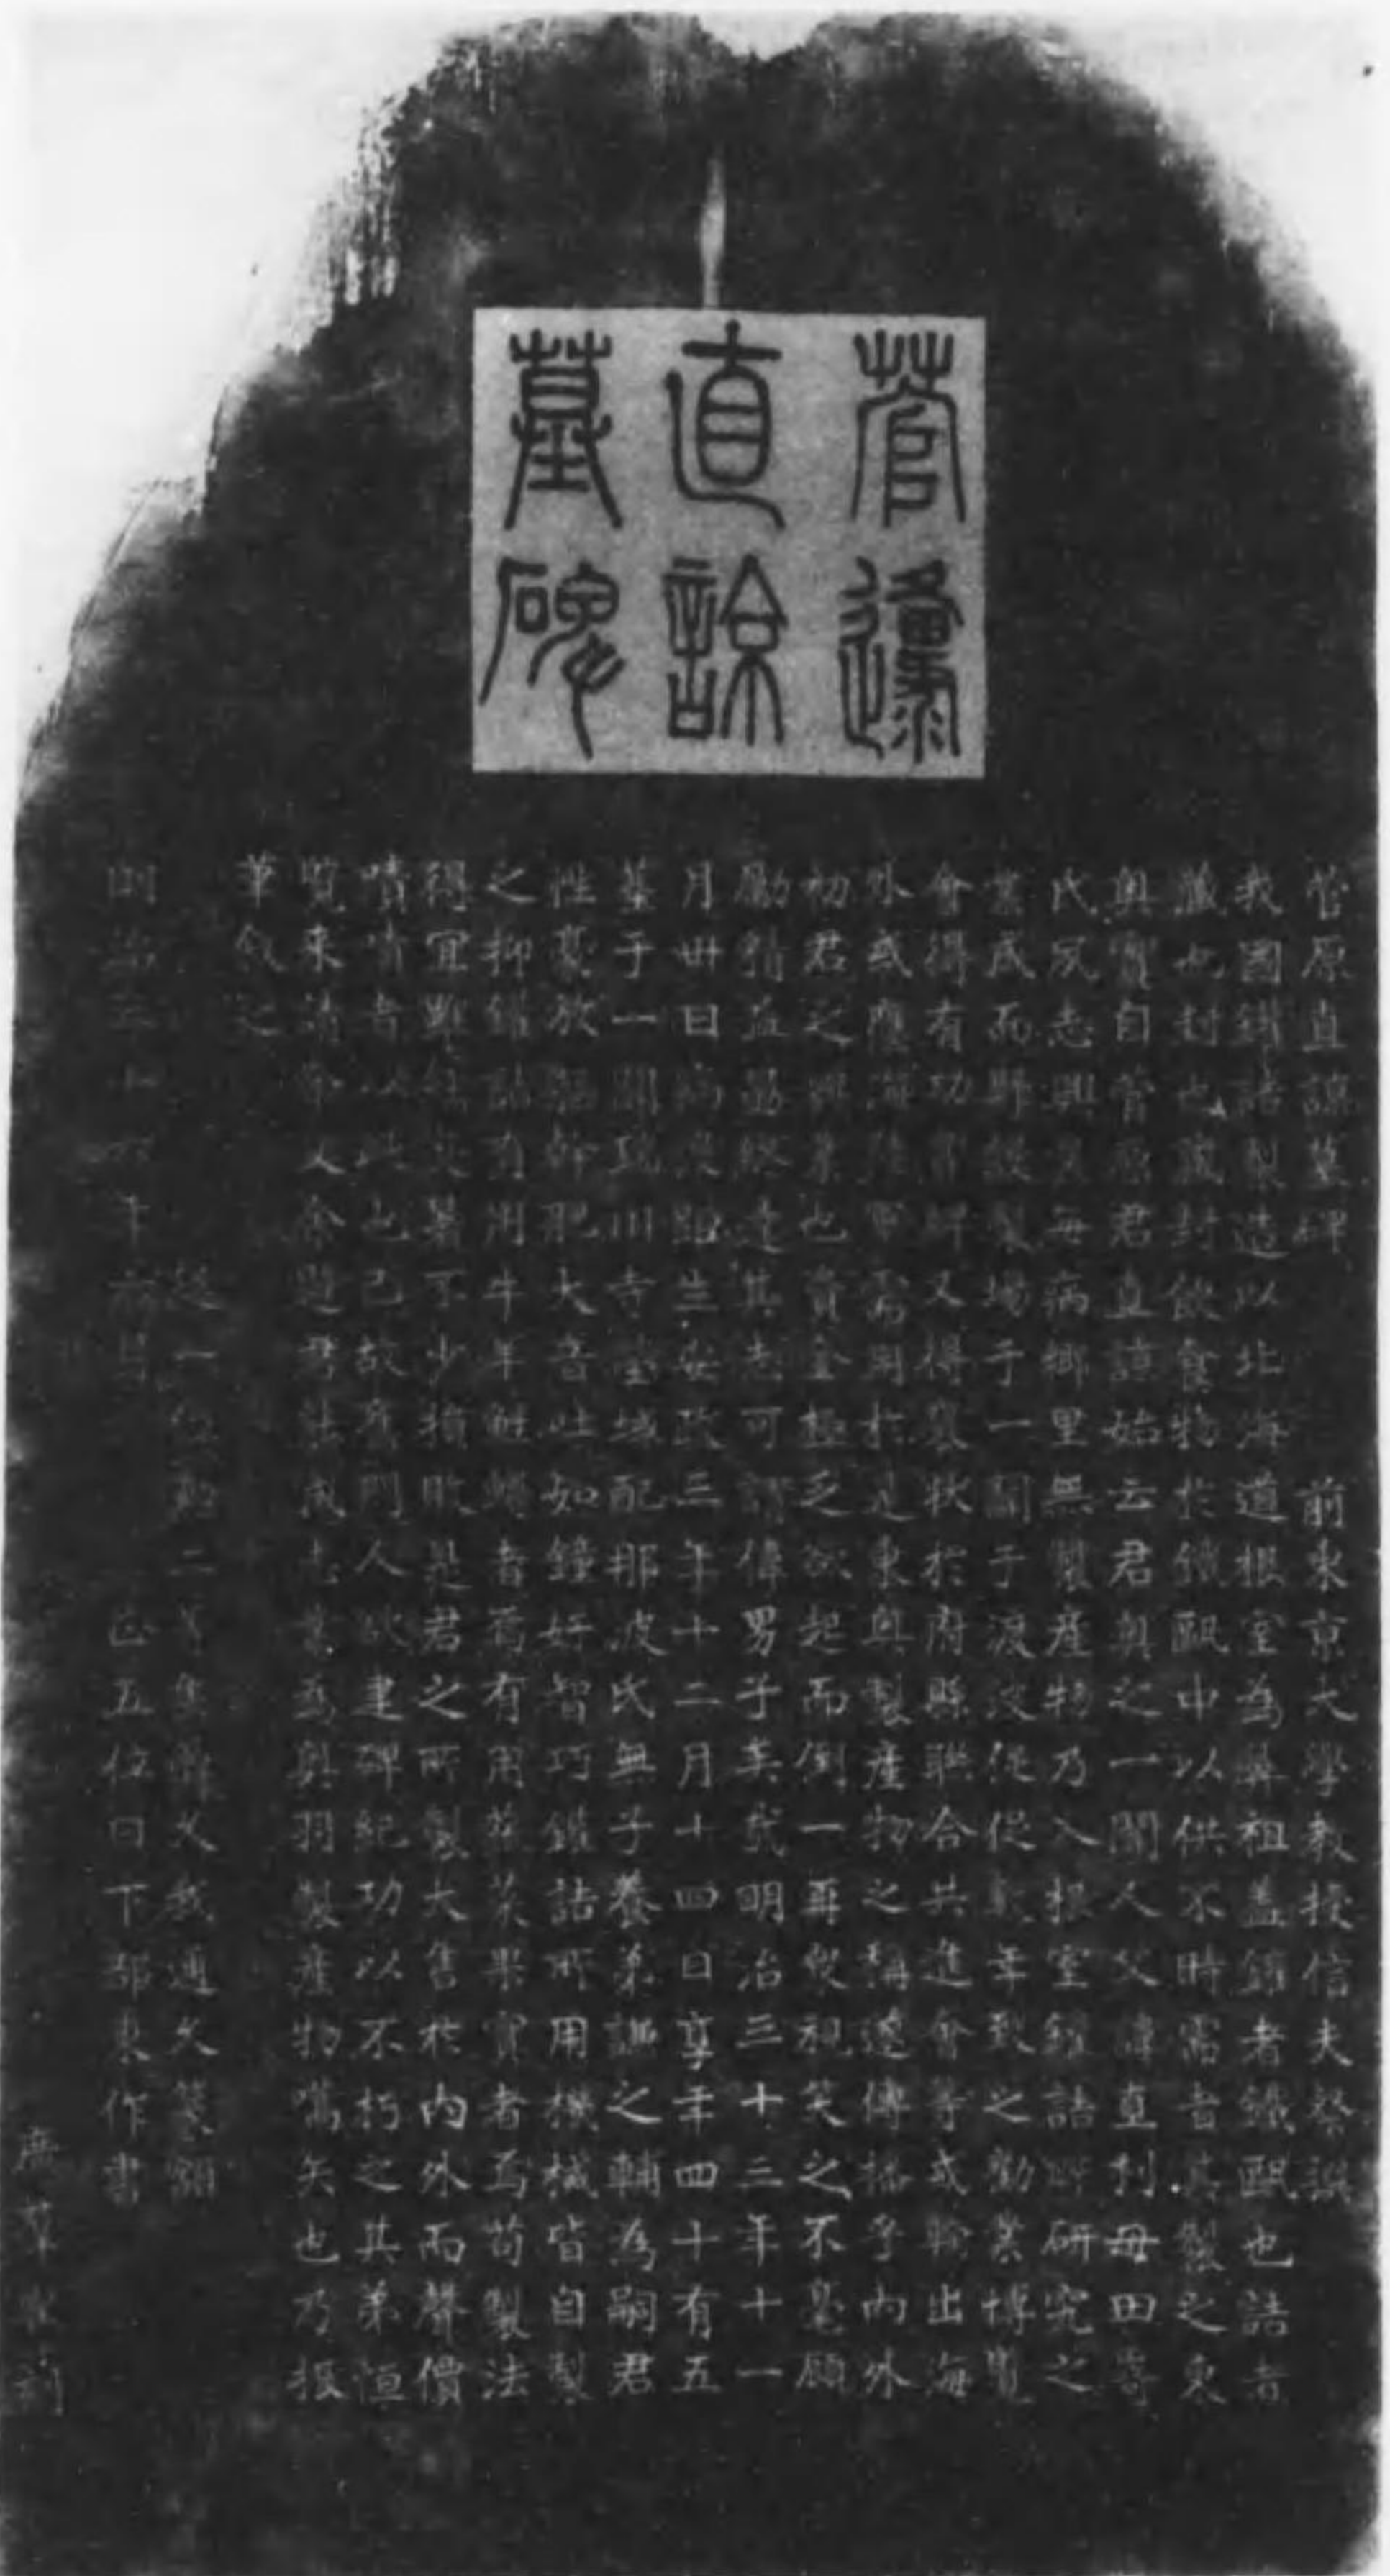 菅邍
直諒
墓碑
菅原直諒墓碑
前東京大學教授信夫粲譔
我國鑵詰製造以北海道根室為鼻祖蓋鑵者鐵甌也詰者
藏也封也藏封飲食物於鐵甌中以供不時需者其製之東
奥實自菅原君直諒始云君奥之一關人父諱直利母田嵜
氏夙志興業每病鄉里無製產物乃入根室鑵詰所研究之
業成而歸設製場于一關于渡波從役數年致之勸業博覽
會得有功賞牌又得褒狀於府縣聯合共進會等或輸出海
外或應海陸軍需用於是東奥製產物之稱遂傳播乎內外
初君之興業也資金極乏欲起而倒一再與視笑之不毫顧
勵精益勗終達其志可謂偉男子矣哉明治三十三年十一
月卅日病歿距生安政三年十二月十四日享年四十有五
葬于一關瑞川寺塋域配那波氏無子養弟謙之輔為嗣君
性豪放軀幹肥大音吐如鐘好智巧鑵詰所用機械皆自製
之抑鑵詰有用牛羊鮭鱒者焉有用蔬菜果實者焉苟製法
得宜雖寒暑不少損敗是君之所製大售於內外而聲價
嘖嘖者以此也已故舊門人欲建碑紀功以不朽之其弟恒
覽來請余文余迺君法成志業為奥羽製產物嚆矢也乃振
筆敘之
從一位勳二等隻爵久我通久篆額
明治三十四年六月
正五位日下部東作書
廣羣鶴刻